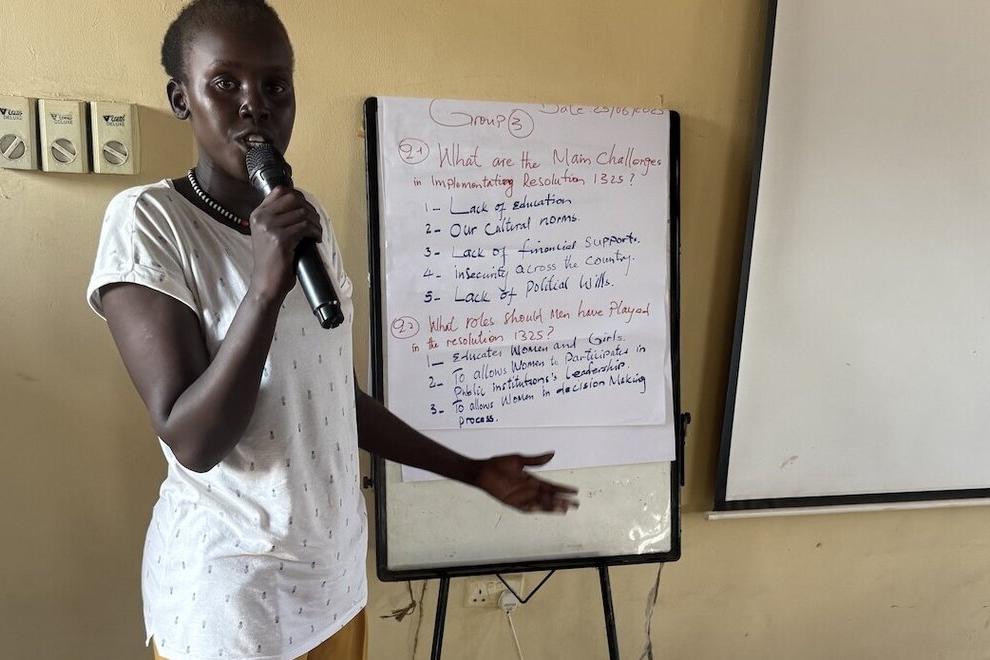 Group 3 Date 29/06/2023
Q1 What are the Main Challenges
in Implementating Resolution 1325?
1- Lack of Education
2- Our Cultural norms.
3- Lack of financial supports.
4- insecurity across the country.
5- Lack of Political Wills.
Q2 What roles should Men have Played
in the resolution 1325?
1- Educates Women and Girls.
2- To allows Women to Participates in
Public institutions's Leadership.
3- To allows Women in decision Making
process.
DELUXE
DELUXE
DELUXE